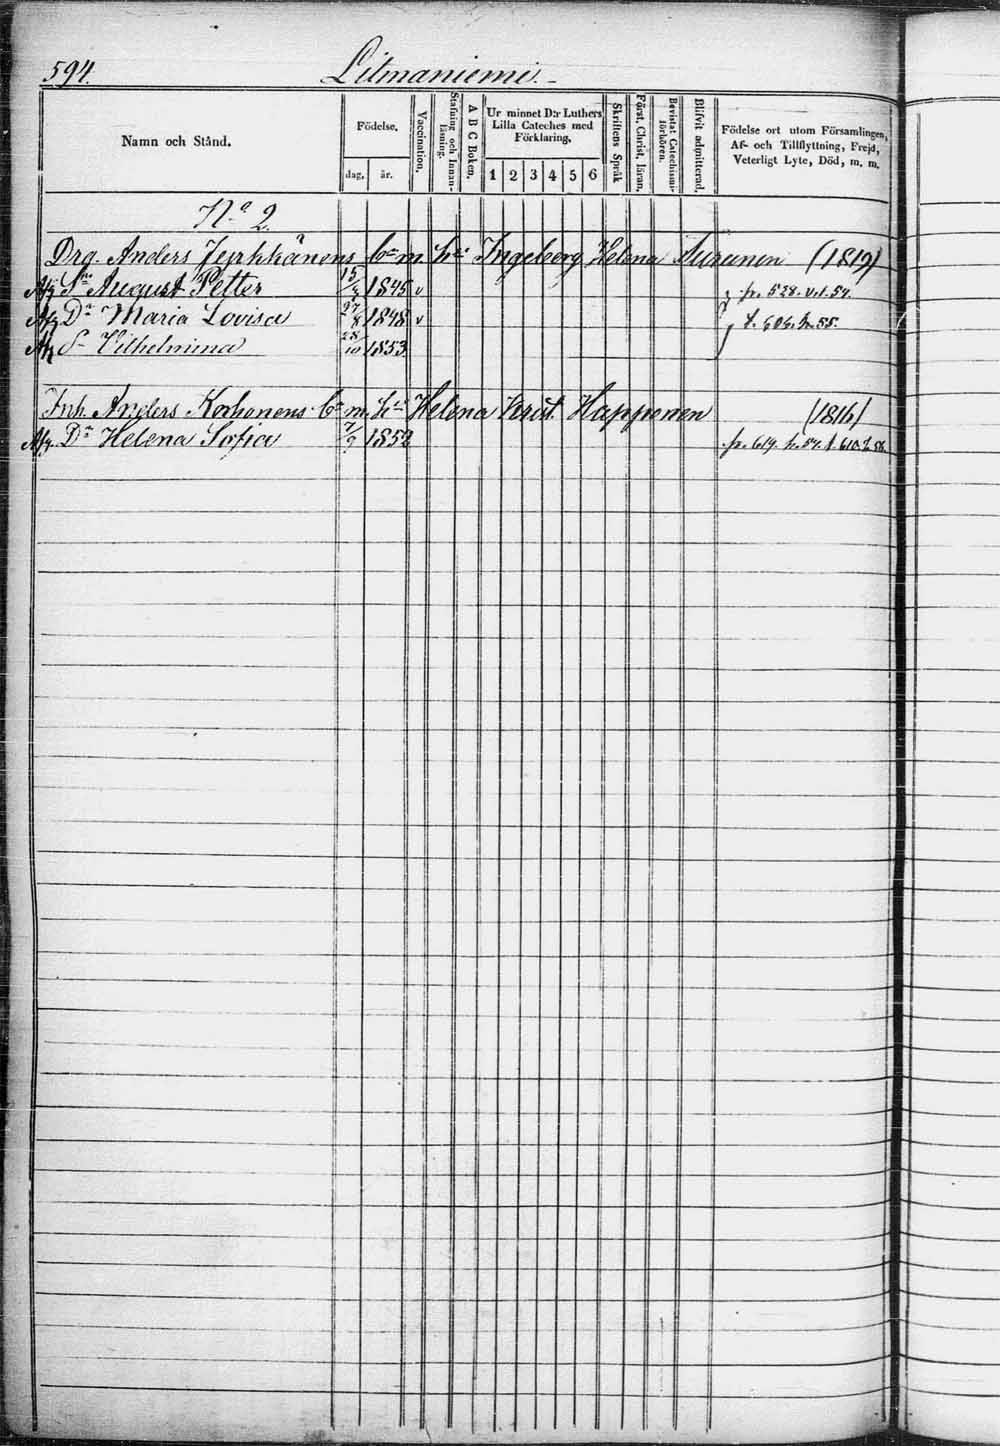 594.
Litmaniemi.
Namn och Stånd.
Födelse.
dag.
år.
Vaccination.
Stafning och Innanläsning.
A B C Boken.
Ur minnet D:r Luthers
Lilla Cateches med
Förklaring.
1 2 3 4 5 6
Skriftens Språk
Först. Christ. läran.
Bevistat Catechismiförhören.
Blifvit admitterad.
Födelse ort utom Församlingen,
Af- och Tillflyttning, Frejd,
Veterligt Lyte, Död, m. m.
N:o 2.
Drg. Anders Jyrkkänens bn m. h:u Ingeborg Helena Turunen (1819)
Afg Sn August Petter 15/3 1845 v fr. 528. v.1.54.
Afg Dr Maria Lovisa 27/8 1848 v t. 606. 55.
Afg Dr Vilhelmina 28/10 1853
Inh. Anders Korhonens bn m. h:u Helena Krist. Happonen (1816)
Afg. Dr Helena Sofia 7/9 1852 fr. 619. 54. t. 610. 58.